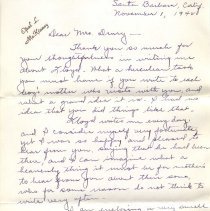 Santa Barbara, Calif.
November 1, 1940
Opal L.
Dear Mrs. Drury —
Thank you so much for
your thoughtfulness in writing me
about Lloyd. What a
you must have if you write to each
boy's mother who visits with you, and
what a good idea it is. I had no
idea that you did things like that.
Lloyd wrote me every day
and I consider myself very fortunate,
yet I was so happy and pleased to
hear from you saying that he had been
there, and I can imagine what a
heavenly thing it must be for mothers
to hear from you about their sons,
who for some reason do not think to
write very often.
I am enclosing a very small